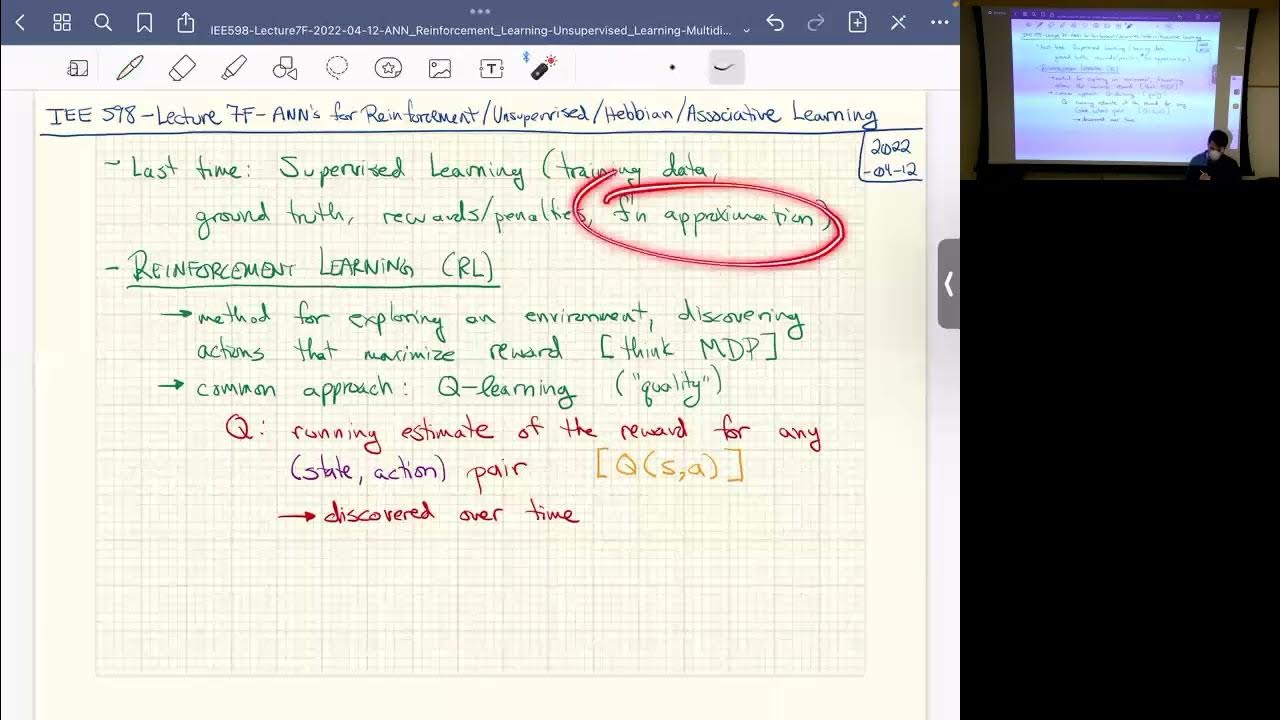 IEE598-Lecture7F-2022-04-12-ANN_Reinforcement_Learning-Unsupervised_Learning-Multidi...
IEE 598-Lecture 7F-ANN's for Reinforcement/Unsupervised/Hebbian/Associative Learning
2022
-04-12
- Last time: Supervised Learning (training data,
ground truth, rewards/penalties, f'n approximation)
- REINFORCEMENT LEARNING (RL)
→ method for exploring an environment, discovering
actions that maximize reward [think MDP]
→ common approach: Q-learning ("quality")
Q: running estimate of the reward for any
(state, action) pair [Q(s,a)]
→ discovered over time